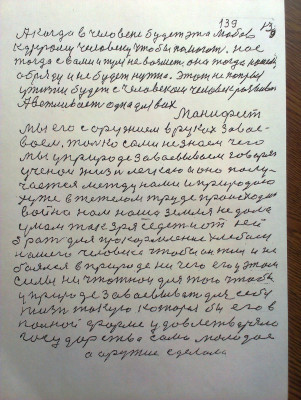 139
А когда в человеке будет эта любовь
к другому человеку чтобы помогат. нас
тогда с вами и тут не возмет она тогда
обряду и не будет нужта. Этот не
у жизни будет с человеком человек
А ветливает одна для вах
Манифест
Мы его с оружием в руках завае-
ваем. только сами не знаем чего
мы у природе заваевываем говорят
ученои жизн легкаю а оно полу-
чается между нами и природою
хуже в тежолом труде происходит
война нам наша земля не дала
умом так зря седет и от ней
брат для прокормление хлебом
нашего человека чтобы он жил и не
боялся в природе ни чего его у этом
силы ничтожной для того чтобы
у природе заваевывают для себе
жизн такую которая бы его в
полной форме удовлетворяло
государства сама молодая
а оружие сделала